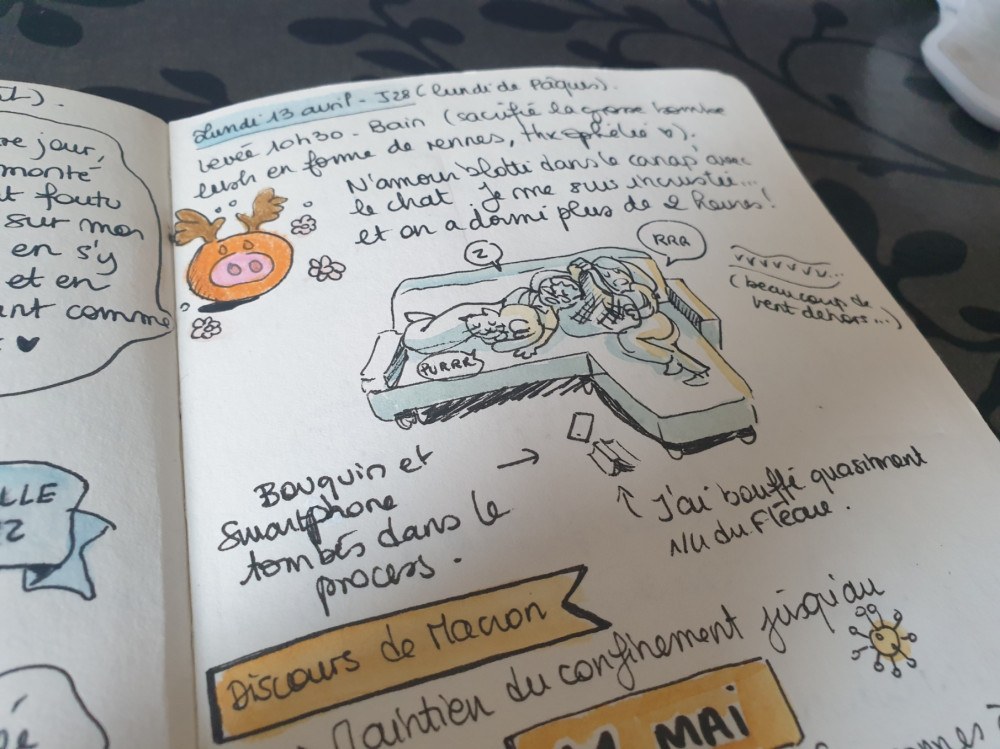 ût).
re jour,
monté
t foutu
sur mon
en s'y
et en
ant comme
LLE
Lundi 13 avril - J28 (lundi de Pâques).
Levée 10h30 - Bain (sacrifié la grosse bombe
lush en forme de rennes,
N'amour blotti dans le canap' avec
le chat. Je me suis incrustée...
et on a dormi plus de 2 heures!
Z
RRR
PURRR
VVVVVVV...
(beaucoup de
vent dehors...)
Bouquin et
Smartphone
tombés dans le
process.
→
↑ J'ai bouffé quasiment
1/4 du Fléau.
Discours de Macron
Maintien du confinement jusqu'au
MAI